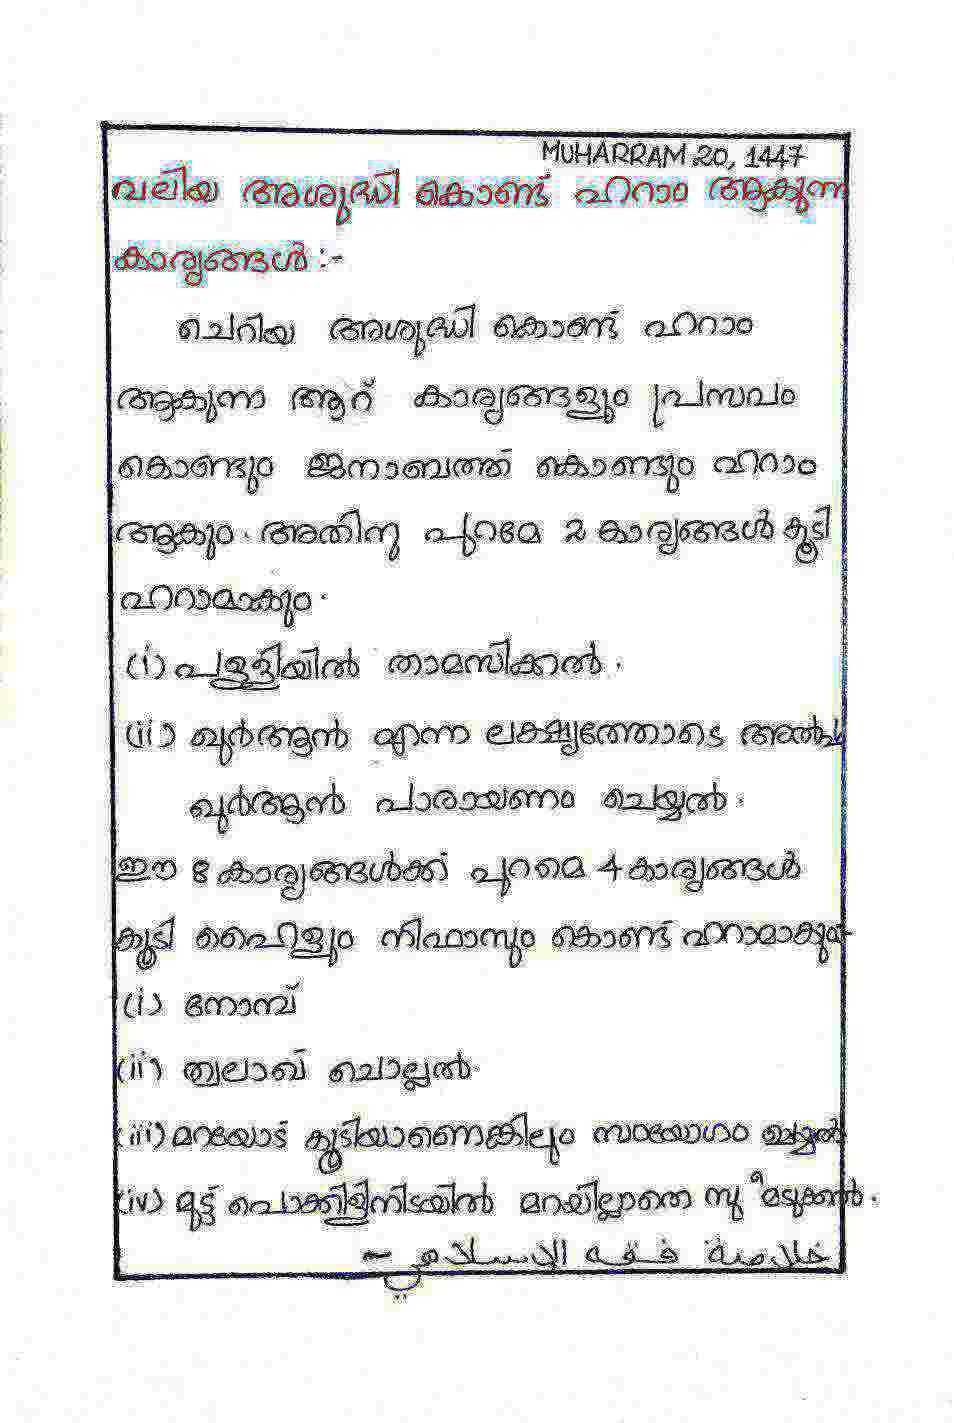 MUHARRAM 20, 1447
വലിയ അശുദ്ധി കൊണ്ട് ഹറാം ആകുന്ന
കാര്യങ്ങൾ :-
ചെറിയ അശുദ്ധി കൊണ്ട് ഹറാം
ആകുന്ന ആറ് കാര്യങ്ങളും പ്രസവം
കൊണ്ടും ജനാബത്ത് കൊണ്ടും ഹറാം
ആകും. അതിനു പുറമേ 2 കാര്യങ്ങൾ കൂടി
ഹറാമാകും.
(i) പള്ളിയിൽ താമസിക്കൽ.
(ii) ഖുർആൻ എന്ന ലക്ഷ്യത്തോടെ അൽപ
ഖുർആൻ പാരായണം ചെയ്യൽ.
ഈ 8 കാര്യങ്ങൾക്ക് പുറമെ 4 കാര്യങ്ങൾ
കൂടി ഹൈളും നിഫാസും കൊണ്ട് ഹറാമാകും
(i) നോമ്പ്
(ii) ത്വലാഖ് ചൊല്ലൽ.
(iii) മറയോട് കൂടിയാണെങ്കിലും സംയോഗം ചെയ്യൽ
(iv) മുട്ട് പൊക്കിളിനിടയിൽ മറയില്ലാതെ
خلاصة فقه الإسلامي ~